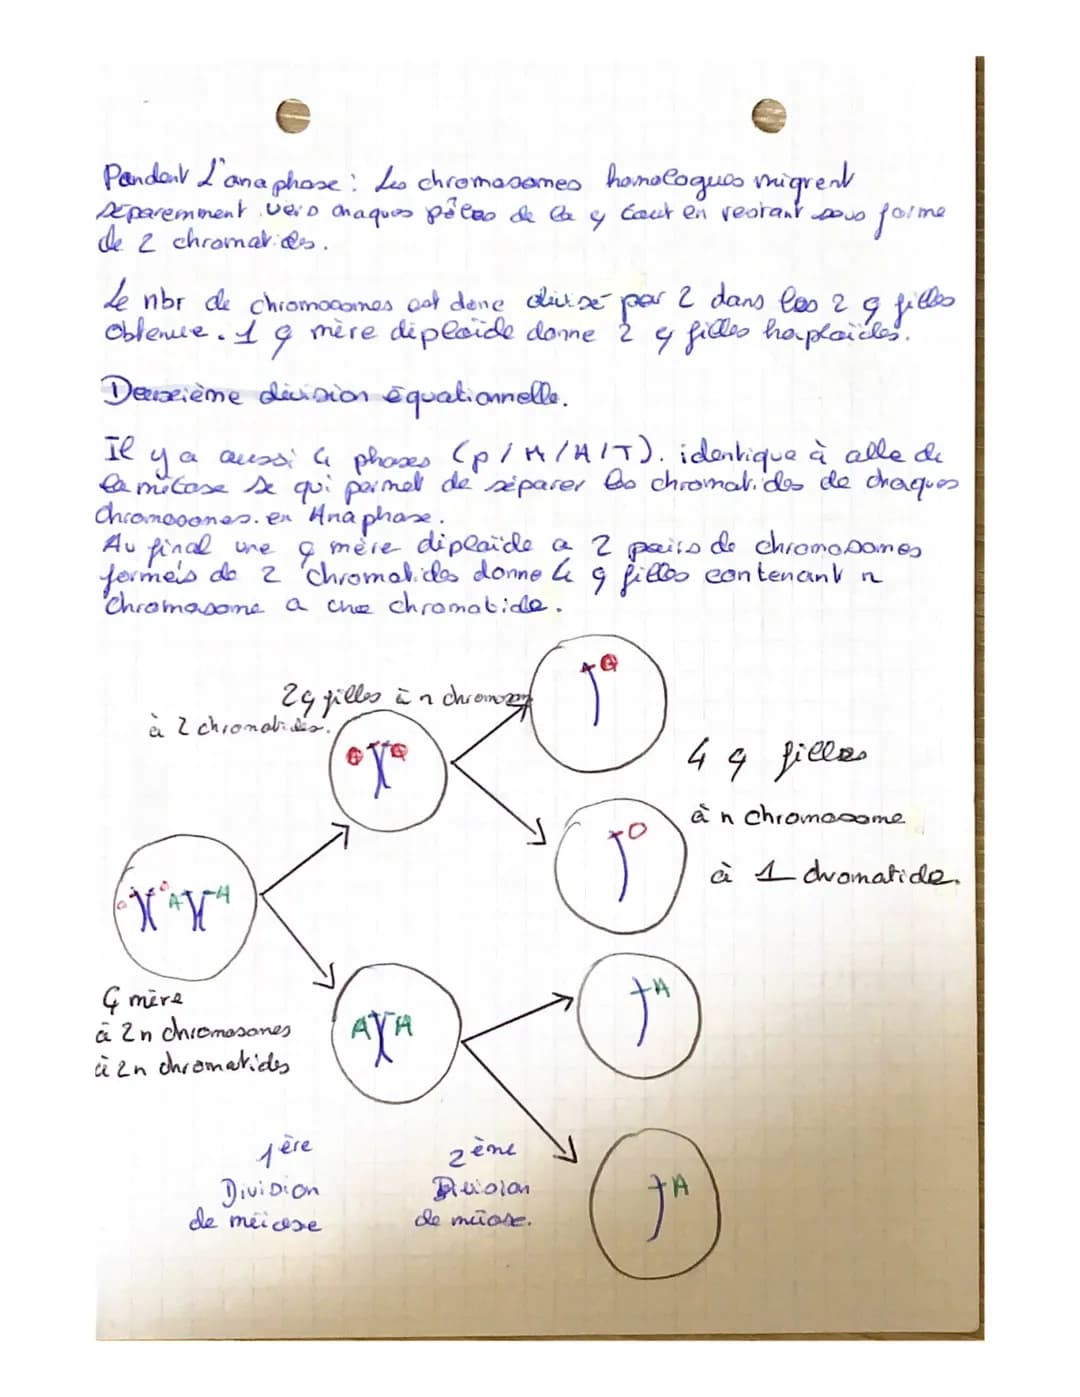 Pendent L'anaphase : Les chromosomes homologues migrent
séparemment vers chaques pôles de la ç tout en restant sous forme
de 2 chromatides.
Le nbr de chromosomes est donc divisé par 2 dans les 2 ç filles
obtenue. 1 ç mère diploïde donne 2 ç filles haploïdes.
Deuxième division équationnelle.
Il y a aussi 4 phases (p/M/A/T). identique à celle de
la mitose se qui permet de séparer les chromatides de chaques
chromosomes. en Anaphase.
Au final une ç mère diploïde a 2 pairs de chromosomes
formés de 2 chromatides donne 4 ç filles contenant n
chromosome a une chromatide.
2ç filles à n chromosom
à 2 chromatides.
4 ç filles
à n chromosome
à 1 chromatide.
O O A A
O O
A A
O
O
A
A
Ç mère
à 2n chromosomes
à 2n chromatides
1ère
Division
de méiose
2ème
Division
de méiose.